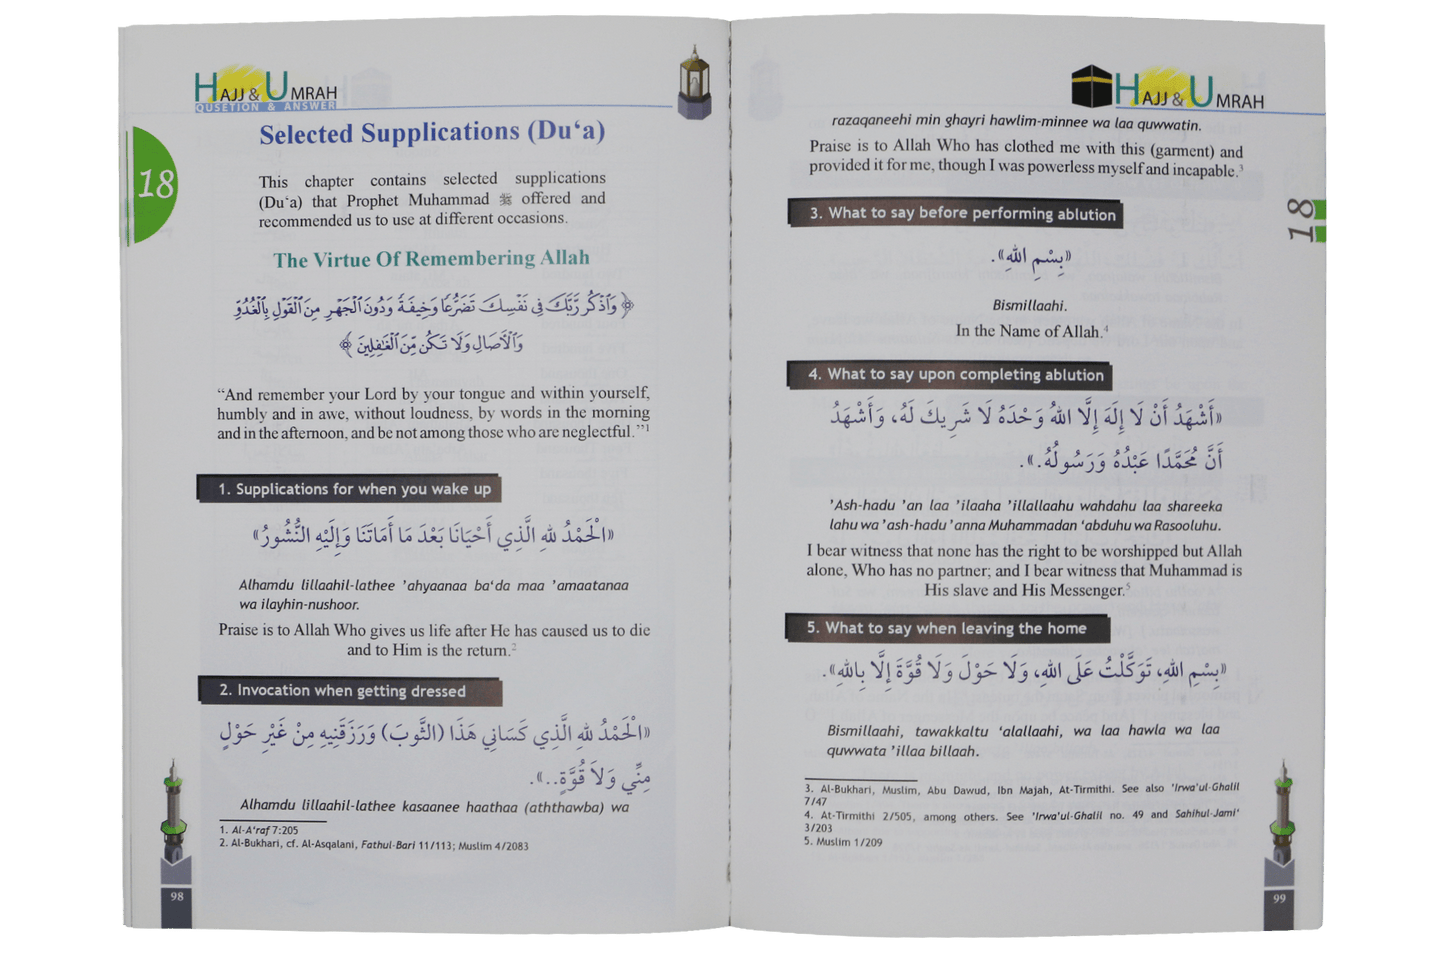 HAJJ & UMRAH
QUSETION & ANSWER
Selected Supplications (Du‘a)
18
This chapter contains selected supplications
(Du‘a) that Prophet Muhammad ﷺ offered and
recommended us to use at different occasions.
The Virtue Of Remembering Allah
﴿ وَٱذْكُر رَّبَّكَ فِى نَفْسِكَ تَضَرُّعًا وَخِيفَةً وَدُونَ ٱلْجَهْرِ مِنَ ٱلْقَوْلِ بِٱلْغُدُوِّ
وَٱلْآصَالِ وَلَا تَكُن مِّنَ ٱلْغَـٰفِلِينَ ﴾
“And remember your Lord by your tongue and within yourself,
humbly and in awe, without loudness, by words in the morning
and in the afternoon, and be not among those who are neglectful.”1
1. Supplications for when you wake up
«الْحَمْدُ لِلهِ الَّذِي أَحْيَانَا بَعْدَ مَا أَمَاتَنَا وَإِلَيْهِ النُّشُورُ»
Alhamdu lillaahil-lathee ’ahyaanaa ba‘da maa ’amaatanaa
wa ilayhin-nushoor.
Praise is to Allah Who gives us life after He has caused us to die
and to Him is the return.2
2. Invocation when getting dressed
«الْحَمْدُ لِلهِ الَّذِي كَسَانِي هَذَا (الثَّوبَ) وَرَزَقَنِيهِ مِنْ غَيْرِ حَوْلٍ
مِنِّي وَلَا قُوَّةٍ..».
Alhamdu lillaahil-lathee kasaanee haathaa (aththawba) wa
1. Al-A‘raf 7:205
2. Al-Bukhari, cf. Al-Asqalani, Fathul-Bari 11/113; Muslim 4/2083
98
HAJJ & UMRAH
razaqaneehi min ghayri hawlim-minnee wa laa quwwatin.
Praise is to Allah Who has clothed me with this (garment) and
provided it for me, though I was powerless myself and incapable.3
18
3. What to say before performing ablution
«بِسْمِ اللهِ».
Bismillaahi.
In the Name of Allah.4
4. What to say upon completing ablution
«أَشْهَدُ أَنْ لَا إِلَهَ إِلَّا اللهُ وَحْدَهُ لَا شَرِيكَ لَهُ، وَأَشْهَدُ
أَنَّ مُحَمَّدًا عَبْدُهُ وَرَسُولُهُ.».
’Ash-hadu ’an laa ’ilaaha ’illallaahu wahdahu laa shareeka
lahu wa ’ash-hadu ’anna Muhammadan ‘abduhu wa Rasooluhu.
I bear witness that none has the right to be worshipped but Allah
alone, Who has no partner; and I bear witness that Muhammad is
His slave and His Messenger.5
5. What to say when leaving the home
«بِسْمِ اللهِ، تَوَكَّلْتُ عَلَى اللهِ، وَلَا حَوْلَ وَلَا قُوَّةَ إِلَّا بِاللهِ».
Bismillaahi, tawakkaltu ‘alallaahi, wa laa hawla wa laa
quwwata ’illaa billaah.
3. Al-Bukhari, Muslim, Abu Dawud, Ibn Majah, At-Tirmithi. See also ’Irwa’ul-Ghalil
7/47
4. At-Tirmithi 2/505, among others. See ’Irwa’ul-Ghalil no. 49 and Sahihul-Jami‘
3/203
5. Muslim 1/209
99